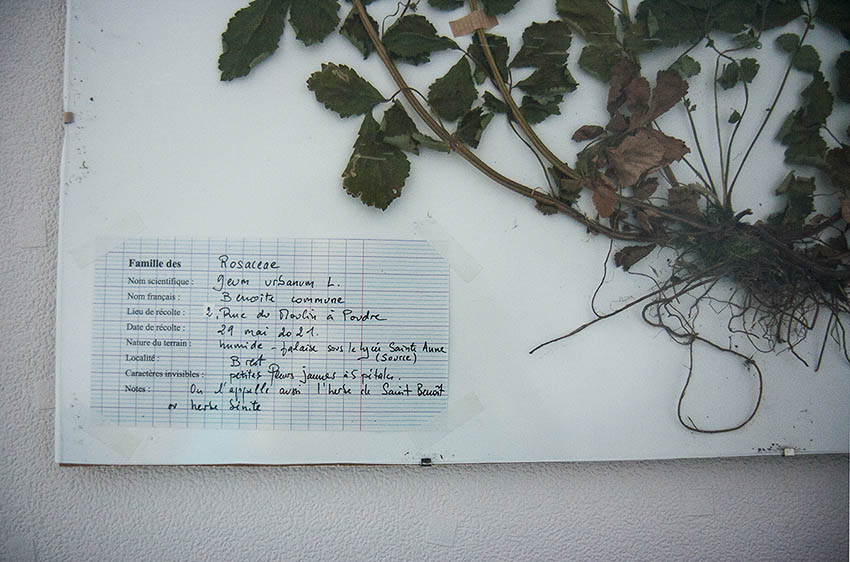 Famille des Rosaceae
Nom scientifique : Geum urbanum L.
Nom français : Benoîte commune
Lieu de récolte : 2, Rue du Moulin à Poudre
Date de récolte : 29 mai 2021.
Nature du terrain : humide - falaise sous le lycée Sainte Anne
(Source)
Localité : Brest
Caractères invisibles : petites fleurs jaunes à 5 pétales.
Notes : On l'appelle aussi l'herbe de Saint Benoît
ou herbe bénite